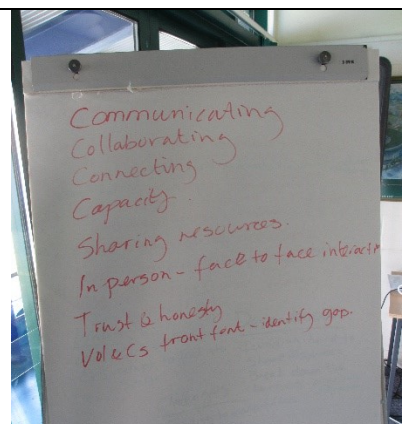 Communicating
Collaborating
Connecting
Capacity.
Sharing resources.
In person - face to face interact
Trust & honesty
Vol & Cs front font - identify gap.